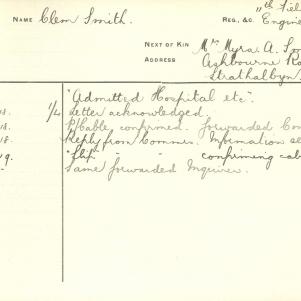 "11th Fiel
NAME Clem Smith. REG., &C. Engine
NEXT OF KIN Mrs Myra A. Sm
ADDRESS Ashbourne Ro
Strathalbyn
"Admitted Hospital etc".
18. 1/4 Letter acknowledged.
18. P/Cable, confirmed. forwarded Com
18. Reply from Commrs. Information se
19. "Slip" " " confirming cab
" Same forwarded Inquirer.